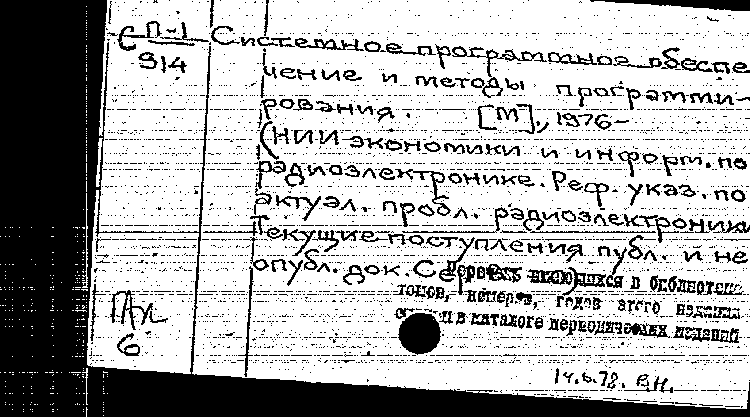 С П-1/914 Системное программное обеспе-
чение и методы программи-
рования. [М], 1976-
(НИИ экономики и информ. по
радиоэлектронике. Реф. указ. по
актуал. пробл. радиоэлектроники
Текущие поступления публ. и не
опубл. док. Сер
Перечень имеющихся в библиотеке
томов, номеров, годов этого издания
в каталоге периодических изданий
6
14.6.78. В.Н.